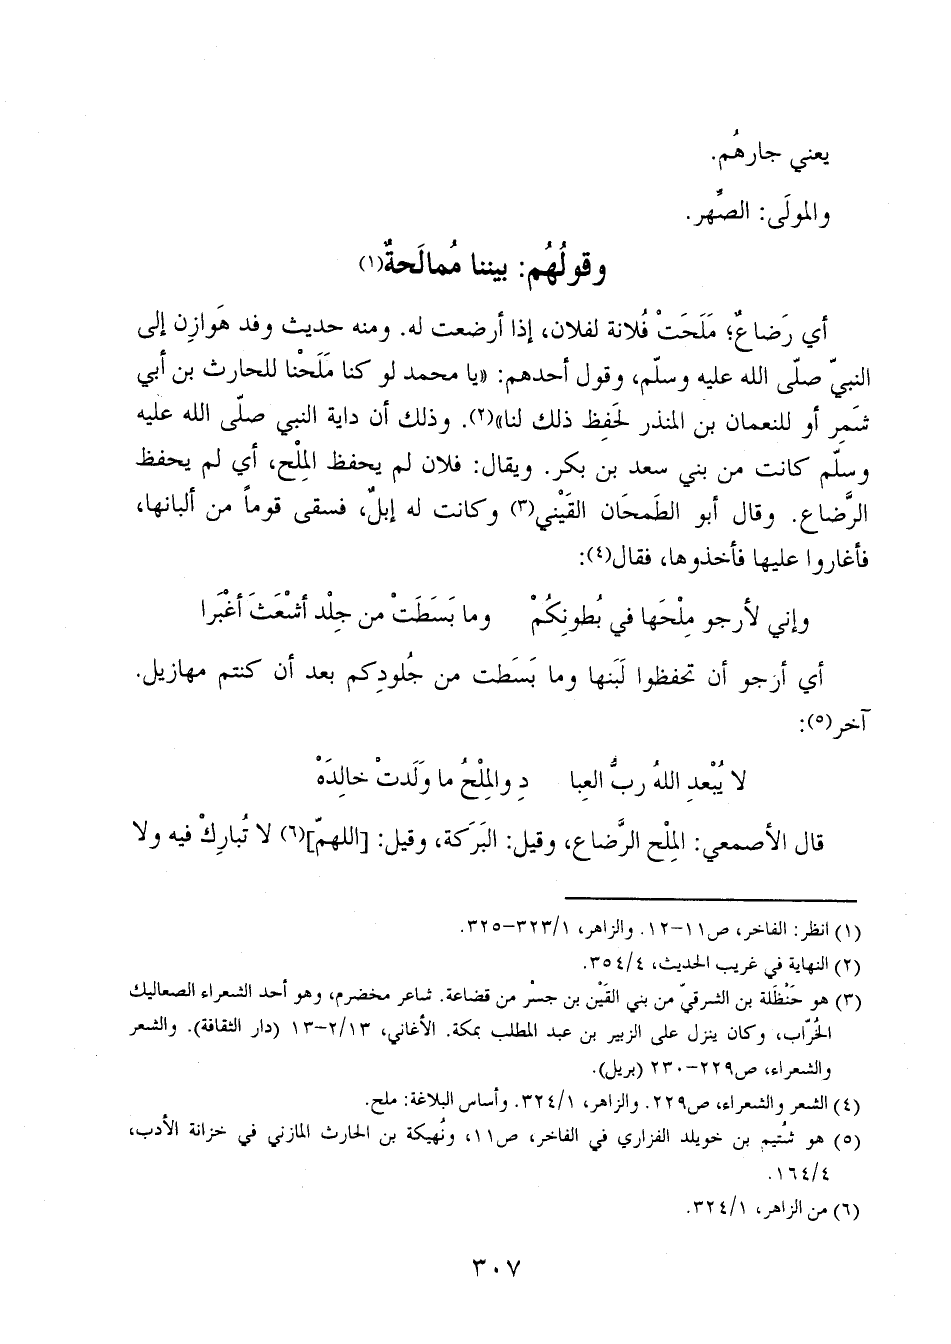 يعني جارهُم.
والمولَى: الصِّهر.
وقولُهُم: بيننا مُمالَحةٌ(١)
أي رَضاعٌ؛ مَلَحَتْ فُلانة لفلان، إذا أرضعت له. ومنه حديث وفد هَوازِن إلى
النبيّ صلّى الله عليه وسلّم، وقول أحدهم: «يا محمد لو كنا مَلَحْنا للحارث بن أبي
شَمَرِ أو للنعمان بن المنذر لَحَفِظ ذلك لنا»(٢). وذلك أن داية النبي صلّى الله عليه
وسلّم كانت من بني سعد بن بكر. ويقال: فلان لم يحفظ المِلْح، أي لم يحفظ
الرَّضاع. وقال أبو الطَمحَان القَيْني(٣) وكانت له إبلٌ، فسقى قوماً من ألبانها،
فأغاروا عليها فأخذوها، فقال(٤):
وإني لأرجو مِلْحَها في بُطونِكُمْ وما بَسَطَتْ من جِلْد أشْعَثَ أغْبَرا
أي أرجو أن تحفظوا لَبَنها وما بَسَطت من جُلودِكم بعد أن كنتم مهازيل.
آخر(٥):
لا يُبْعدِ اللهُ ربُّ العِبا دِ والمِلْحُ ما وَلَدتْ خالِدَهْ
قال الأصمعي: المِلْح الرَّضاع، وقيل: البَرَكة، وقيل: [اللهمّ](٦) لا تُبارِكْ فيه ولا
(١) انظر: الفاخر، ص١١-١٢. والزاهر، ٣٢٣/١-٣٢٥.
(٢) النهاية في غريب الحديث، ٣٥٤/٤.
(٣) هو حَنْظَلة بن الشرقيّ من بني القَيْن بن جسْر من قضاعة. شاعر مخضرم، وهو أحد الشعراء الصعاليك
الخُرّاب، وكان ينزل على الزبير بن عبد المطلب بمكة. الأغاني، ٢/١٣-١٣ (دار الثقافة). والشعر
والشعراء، ص٢٢٩-٢٣٠ (بريل).
(٤) الشعر والشعراء، ص٢٢٩. والزاهر، ٣٢٤/١. وأساس البلاغة: ملح.
(٥) هو شُتيم بن خويلد الفزاري في الفاخر، ص١١، ونُهيكة بن الحارث المازني في خزانة الأدب،
١٦٤/٤.
(٦) من الزاهر، ٣٢٤/١.
٣٠٧